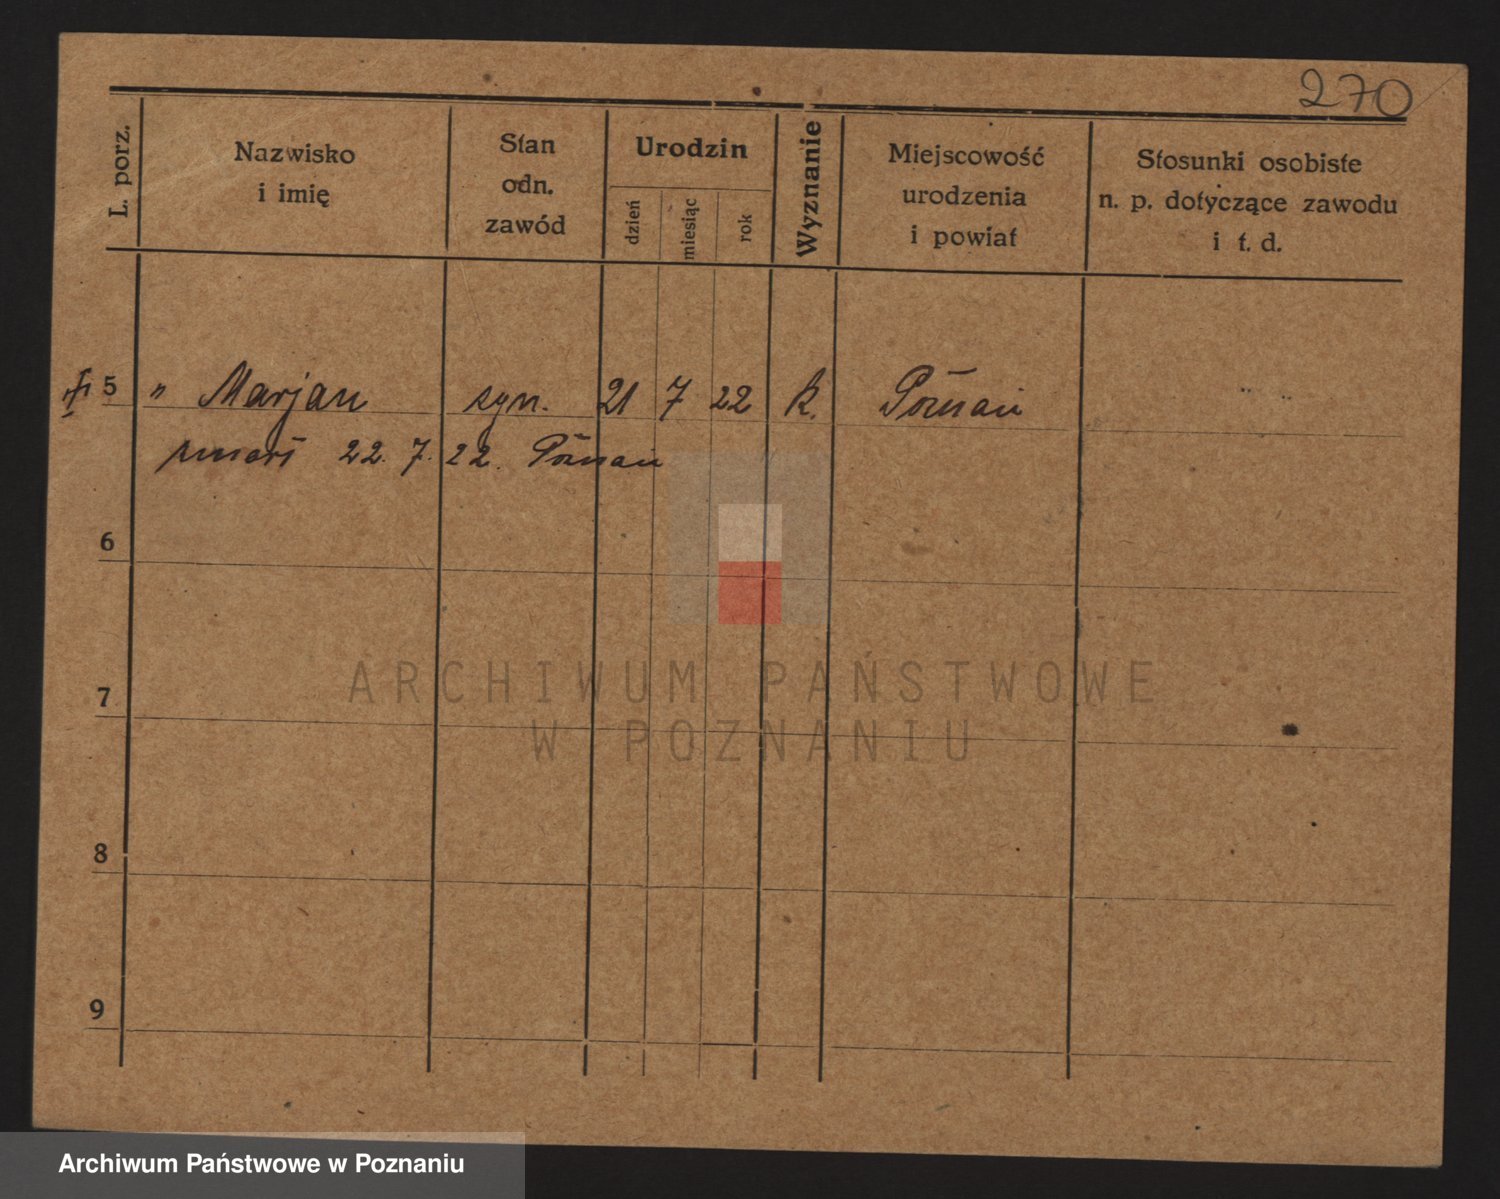 270
L. porz.
Nazwisko
i imię
Stan
odn.
zawód
Urodzin
dzień
miesiąc
rok
Wyznanie
Miejscowość
urodzenia
i powiat
Stosunki osobiste
n. p. dotyczące zawodu
i t. d.
5 " Marjan syn. 21 7 22 k. Poznań
zmarł 22. 7. 22. Poznań
6
7
8
9
ARCHIWUM PAŃSTWOWE
W POZNANIU
Archiwum Państwowe w Poznaniu